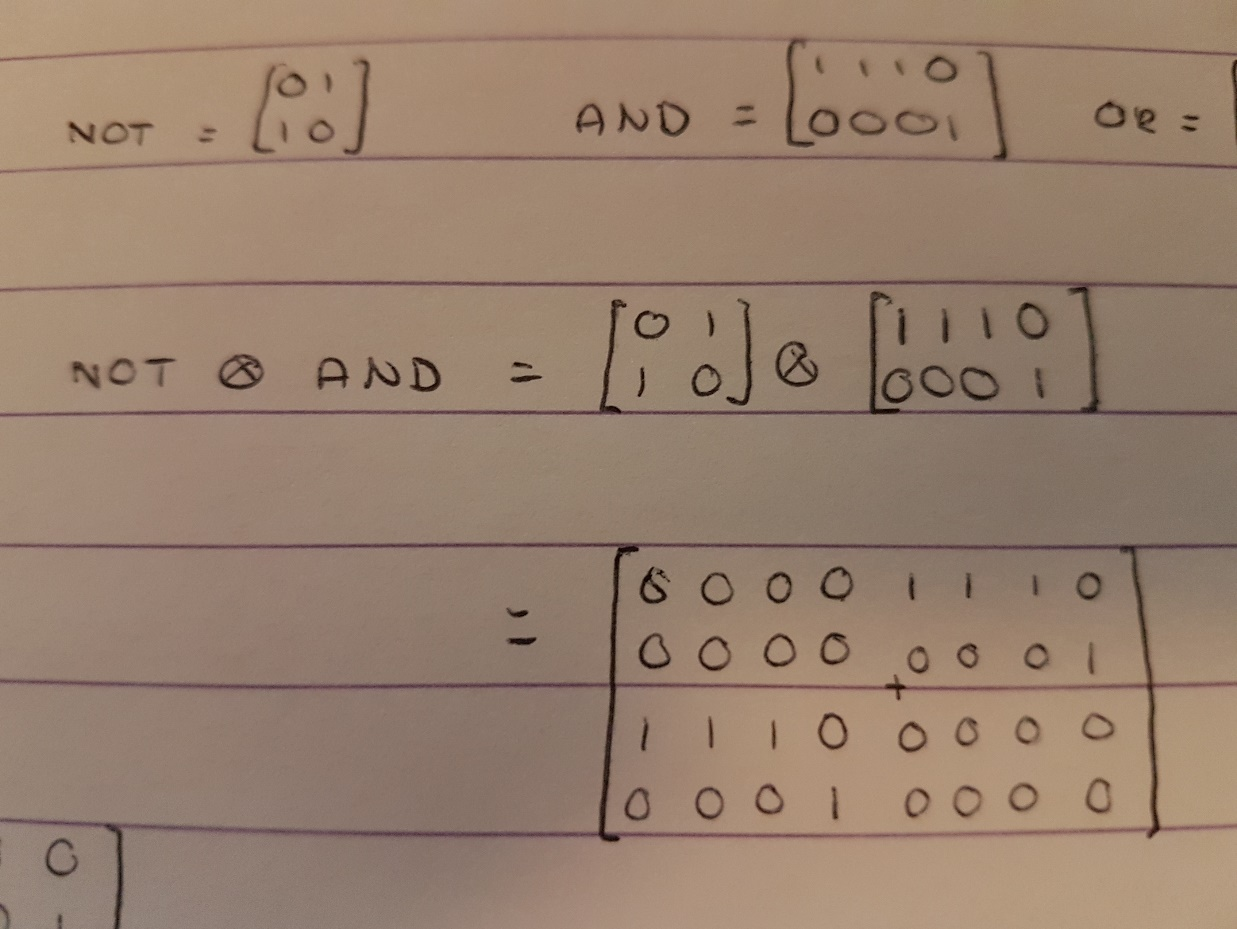 NOT = [0 1 AND = [1 1 1 0 OR = [
1 0] 0 0 0 1]
NOT ⊗ AND = [0 1 ⊗ [1 1 1 0
1 0] 0 0 0 1]
= [0 0 0 0 1 1 1 0
0 0 0 0 0 0 0 1
+
1 1 1 0 0 0 0 0
0 0 0 1 0 0 0 0]
0